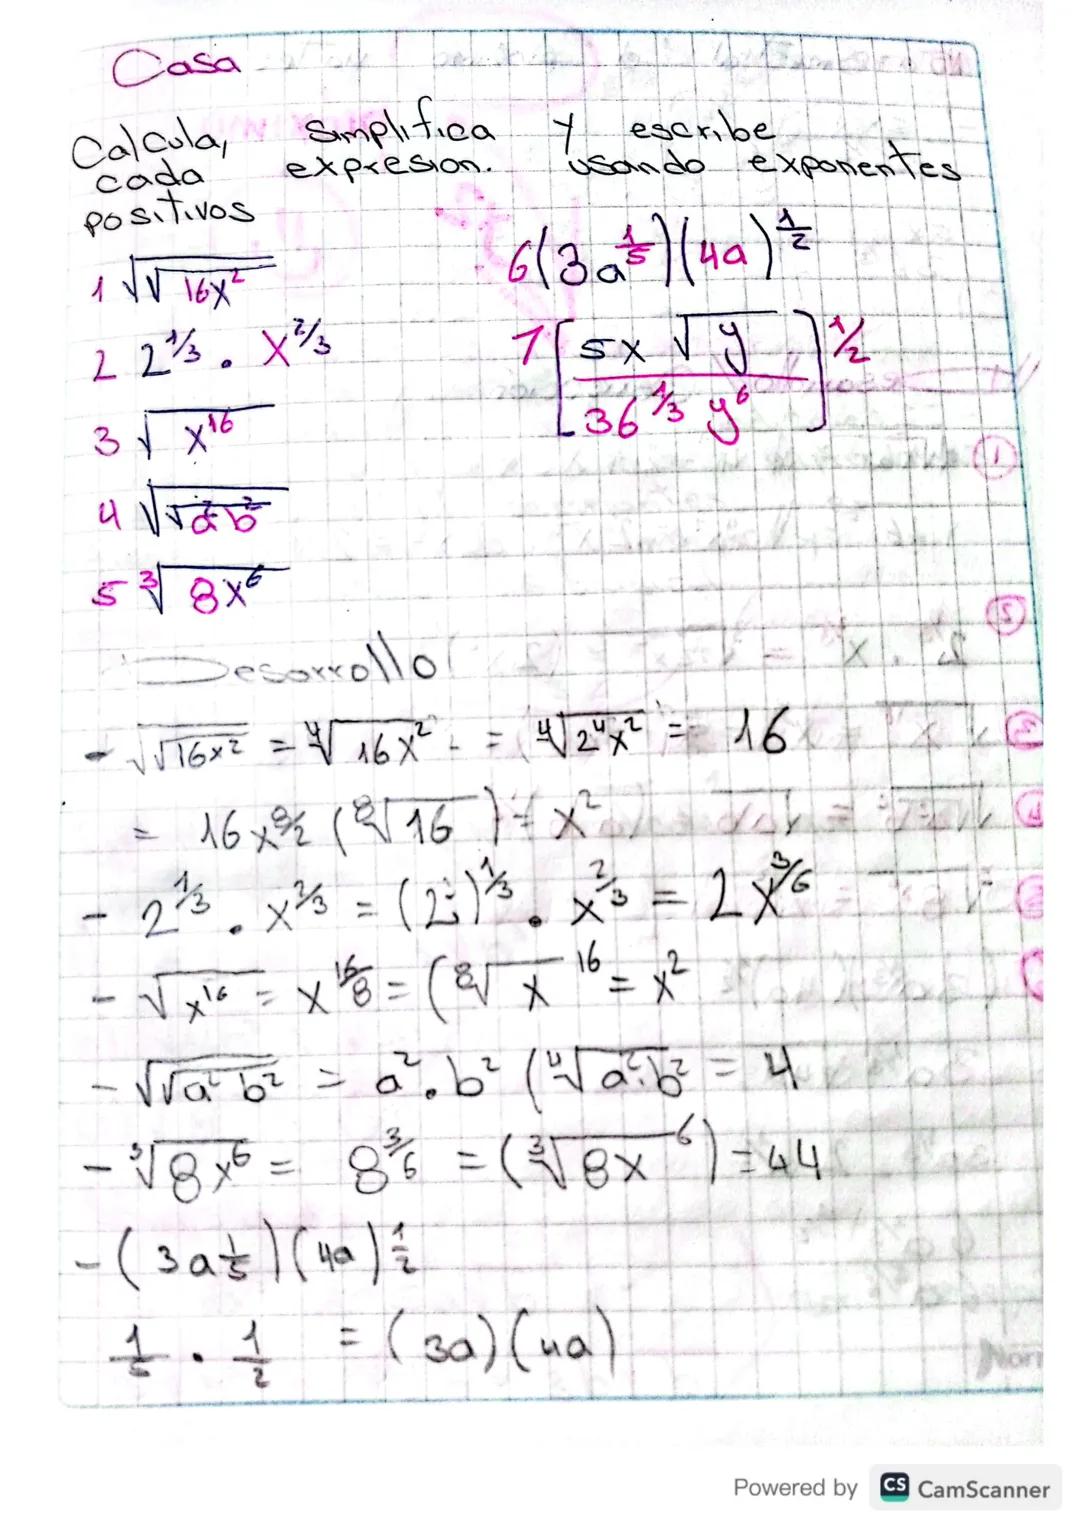 Casa
Calcula, simplifica y escribe
cada expresion. usando exponentes
positivos
1 √√16x²
2 2^1/3 . x^2/3
3 √x^16
4 √√a²b²
5 ³√8x⁶
6 (3a^1/5)(4a)^1/2
7 [5x√y / 36^1/3 y⁶]^1/2
Desorrollo
- √√16x² = ⁴√16x² = ⁴√2⁴x² = 16
= 16x^8/2 (⁸√16) = x²
- 2^1/3 . x^2/3 = (2)^1/3 . x^2/3 = 2x^3/6
- √x^16 = x^16/8 = (⁸√x^16 = x²
- √√a² b² = a² . b² (⁴√a².b² = 4
- ³√8x⁶ = 8^3/6 = (³√8x⁶) = 44
- (3a^1/5)(4a)^1/2
1/5 . 1/2 = (3a)(4a)
Powered by CS CamScanner